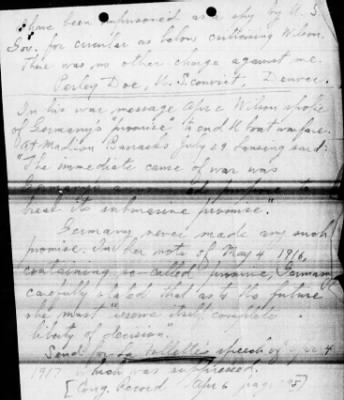 I have been imprisoned as a spy by U. S
Gov. for circular as below criticising Wilson.
There was no other charge against me.
Perley Doe, U. S. convict, Denver.
In his war message Apr 2 Wilson spoke
of Germany's "promise" to end U boat warfare.
At Madison Barracks July 29 Lansing said:
"The immediate cause of war was
break its submarine promise".
Germany never made any such
promise. In her note of May 4 1916,
containing so-called promise, Germany
carefully stated that as to the future
she must "reserve itself complete
liberty of decision".
Send for La Follette's speech of Apr. 4
1917 which was suppressed.
[Cong. Record Apr 6 page